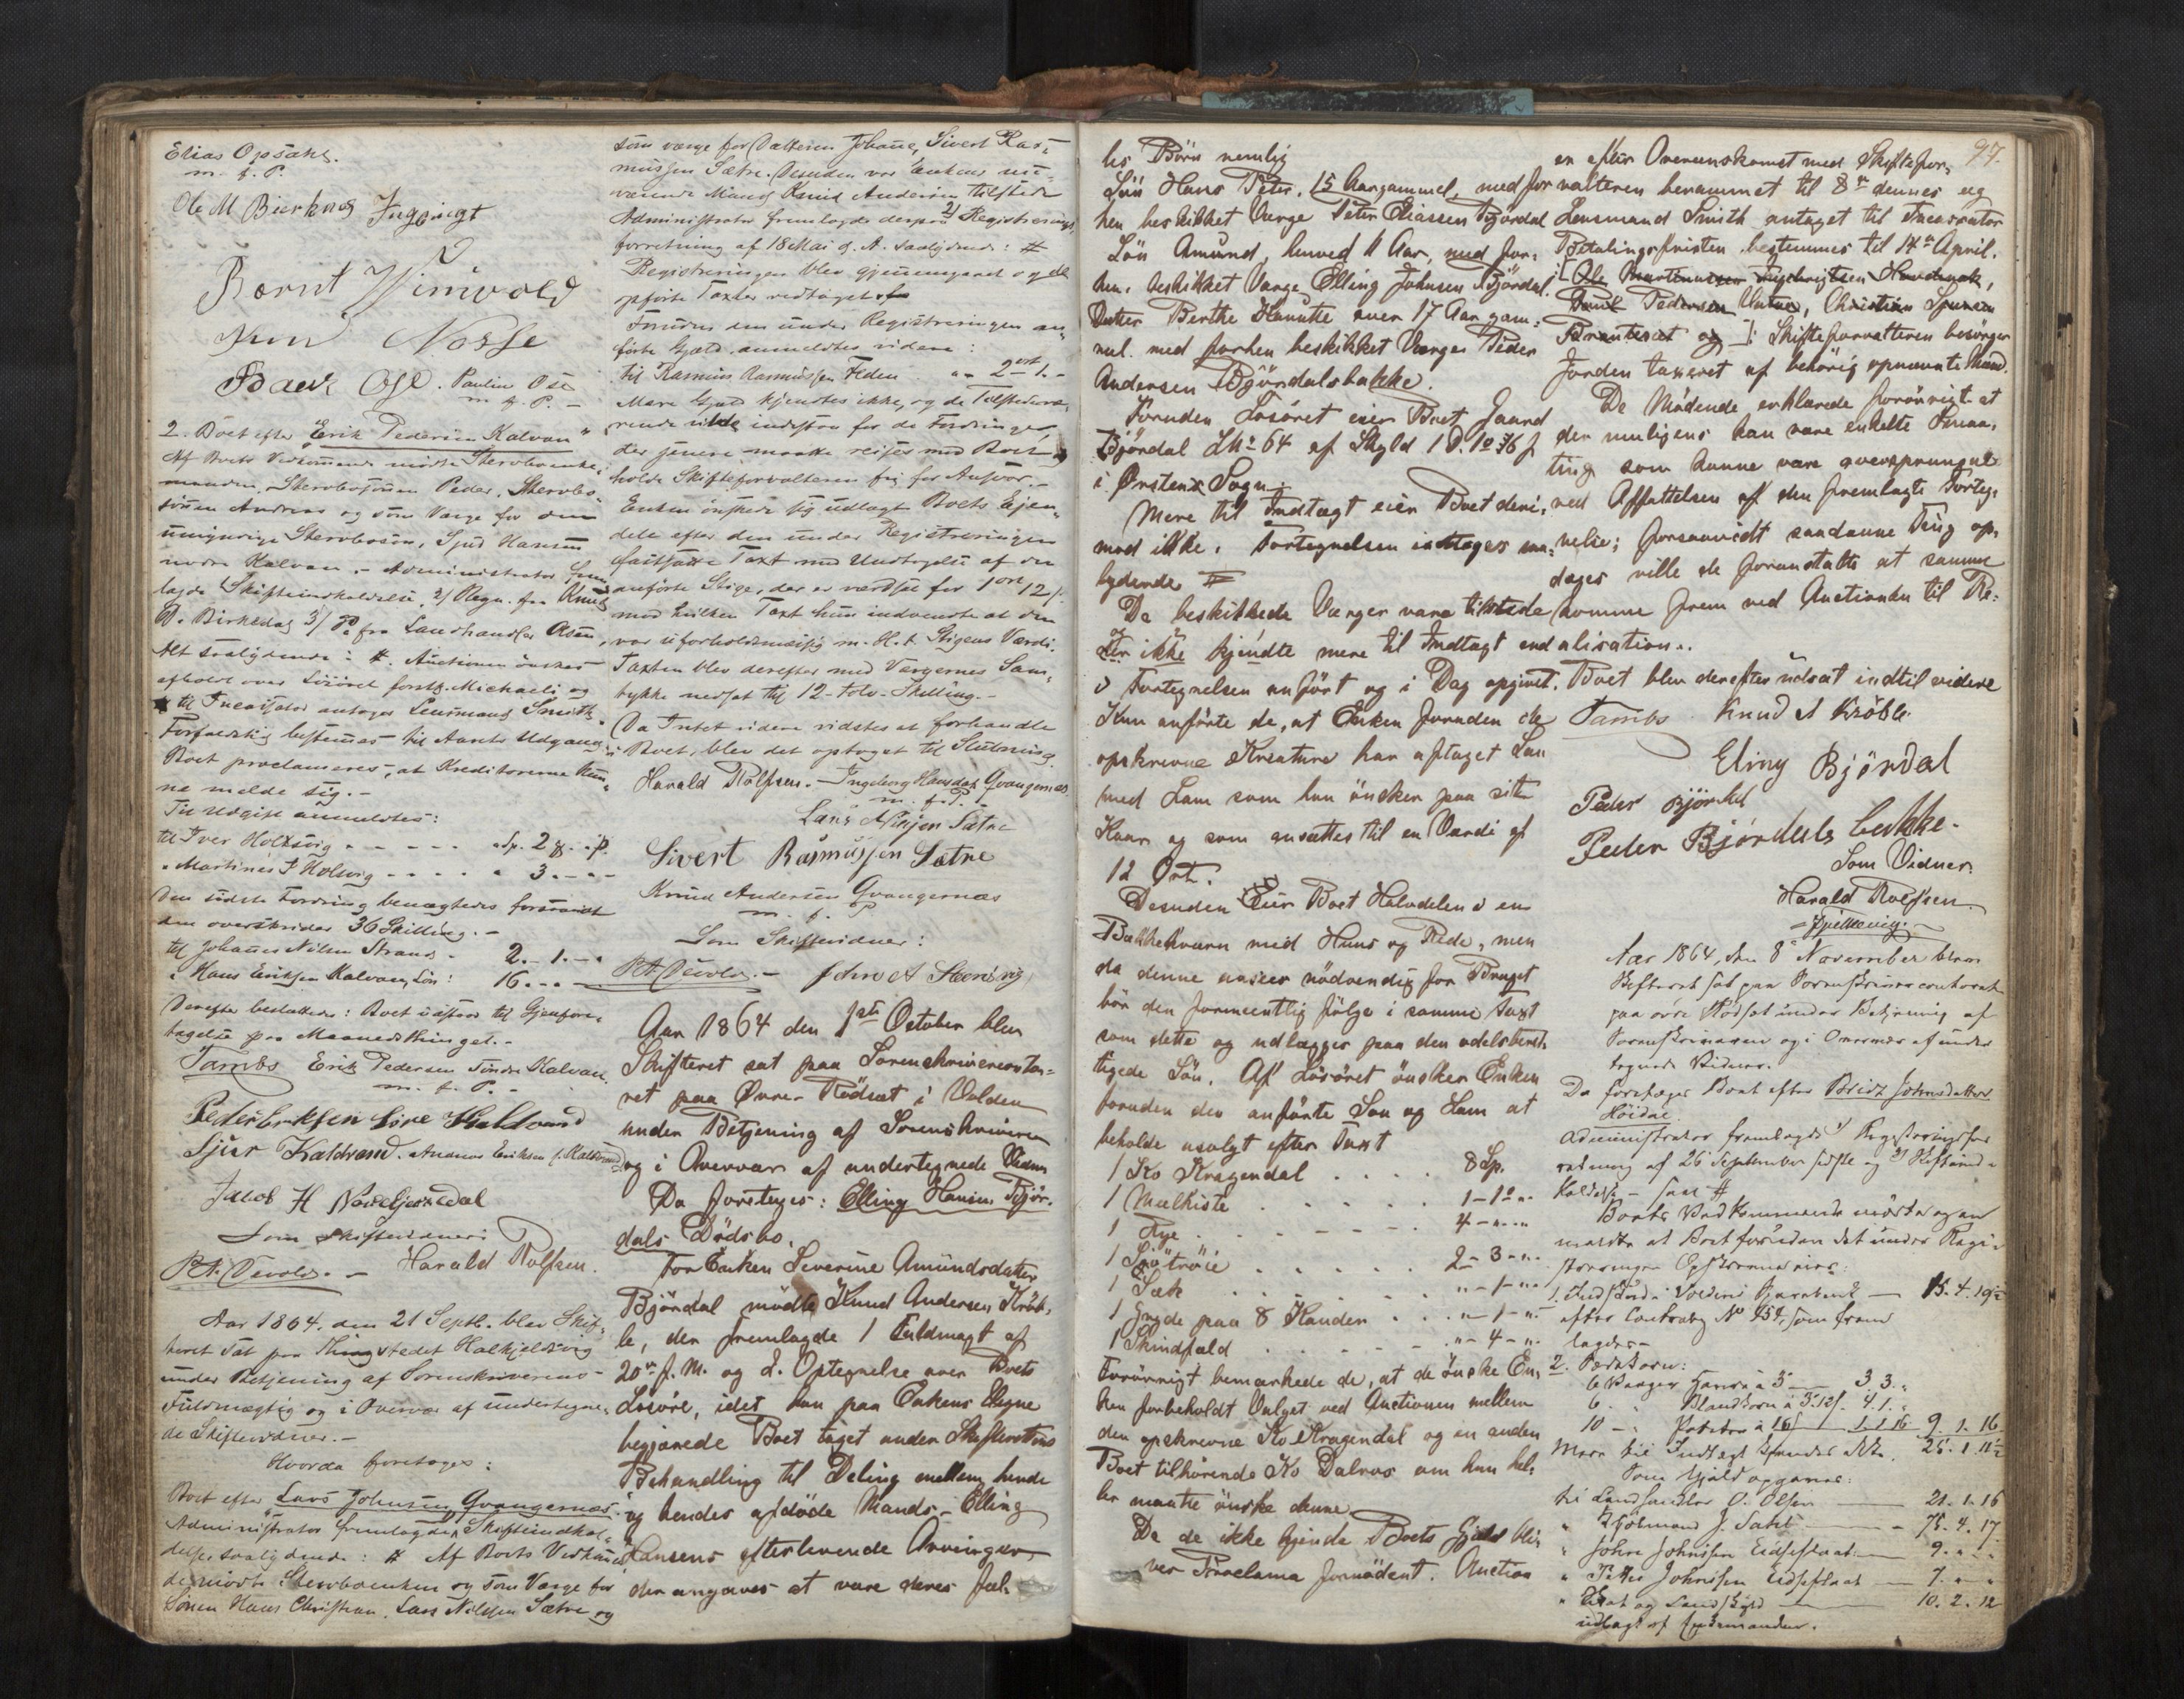 Elias Opsahl.
m. f. P.
Ole M Bierknes Ingbrigt
Bernt Vinivold
Knud Nosse
Baard Ose. Paulin Ose
m. f. P. -
2. Boet efter Erik Pedersen Kalvan"
Af Boets Vedkommende mødte Stervboenke-
manden, Stervbosønnen Peder, Stervbo-
sønnen Andreas og som Værge for den
umyndige Stervbosøn, Sjur Hansen
nedre Kalvan. - Administrator frem-
lagde Skifteindkaldelse, 2/ Regn. fra Knud
A. Birkedal 3/ Do fra Landhandler Olsen,
Alt saalydende: #. Auctionen ønskes
afholdt over Løsøret førstk. Michaeli og
til Incassator antoges Lensmand Smith.
Forfaldstid bestemmes til Aarets Udgang.
Boet proclameres, at Kreditorerne kun-
ne melde sig. -
Til Udgift anmeldtes:
til Iver Holtsvig - - - - - Sp. 2 . . p.
" Martinus I Holsvig - - - - " 3. - " -
Den sidste Fordring benægtedes forsaavidt
den overskrider 36 Skilling. -
til Johannes Nilsen Strand - 2. - 1. - "
" Hans Eriksen Kalvan, Løn: 16. - - -
Derefter besluttedes: Boet udsættes til Gjenfore-
tagelse paa Maanedsthinget. -
Tambs Erik Pedersen Søndre Kalvan
m. f. P. -
Peder Eriksen Kaldvand
Sjur Kaldvand. Andreas Eriksen f. Kaldvand
Jacob H Nordgjerdedal
Som Skiftevidner:
P. A. Devold. - Harald Rolfsen.
Aar 1864. den 21 Septb. blev Skif-
teret sat paa Thingstedet Halkjelsvig
under Betjening af Sorenskriverens
Fuldmægtig og i Overvær af undertegne-
de Skiftevidner. -
Hvorda foretoges:
Boet efter Lars Johnsen Qvangernæs.
Administrator fremlagde 1/ Skifteindkal-
delse, saalydende: # Af Boets Vedkommen-
de mødte Stervboenken og som Værge for
Sønnen Hans Christian, Lars Nilssen Sætre og
som værge for Datteren Johanne, Sivert Ras-
mussen Sætre. Desuden var Enkens nu-
værende Mand Knud Andersen tilstede
Administrator fremlagde dernæst 2/ Registrerings-
forretning af 18 Mai d. A. saalydende: #
Registreringen blev gjennemgaaet og de
opførte Taxter vedtaget
Foruden den under Registreringen an-
førte Gjæld anmeldtes videre:
til Rasmus Rasmussen Heden "- 2 ort 1. -
Mere Gjæld kjendtes ikke, og de Tilstedevæ-
rende vilde indestaa for de Fordringer
der senere maatte reises mod Boet,
holde Skifteforvalteren fri for Ansvar. -
Enken ønskede sig udlagt Boets Ejen-
dele efter den under Registreringen
fastsatte Taxt med Undtagelse af den
anførte Stige, der er værdsat for 1 ort 12 s.
mod hvilken Taxt hun indvendte at den
var uforholdsmæssig m. H. t. Stigens Værdi.
Taxten blev derefter med Værgernes Sam-
tykke nedsat til 12 - tolv - Skilling. -
Da Intet videre vidstes at forhandle
i Boet, blev det optaget til Slutning.
Harald Rolfsen. - Ingeborg Hansdat Qvangernæs
m. f. P. -
Lars Nilsen Sætre
Sivert Rasmussen Sætre
Knud Andersen Qvangernæs
m. f. P
Som Skiftevidner:
P. A. Devold. - John A Steinsvig
Aar 1864 den 1ste October blev
Skifteret sat paa Sorenskrivercontoi-
ret paa Øvre Rødsæt i Volden
under Betjening af Sorenskriveren
og i Overvær af undertegnede Vidner
Da foretoges: Elling Hansen Bjør-
dals Dødsbo.
For Enken Severine Amundsdatter
Bjørdal mødte Knud Andersen Krøb-
le, der fremlagde 1 Fuldmagt af
20de f. M. og 2. Optegnelse over Boets
Løsøre, idet han paa Enkens Vegne
begjærede Boet taget under Skifterettens
Behandling til Deling mellem hende
og hendes afdøde Mands - Elling
Hansens efterlevende Arvinger
der angaves at være deres fæl-
les Børn nemlig
Søn Hans Peter, 15 Aar gammel, med for
hen beskikket Værge Peter Eliassen Bjørdal
Søn Amund, henved 11 Aar, med for-
hen beskikket Værge Elling Johnsen Bjørdal.
Datter Berthe Hanutte over 17 Aar gam-
mel. med forhen beskikket Værge Peder
Andersen Bjørdalsbakke.
Foruden Løsøret eier Boet Jaard
Bjørdal LNo 64 af Skyld 1 D. 1o 76 f
i Ørstens Sogn.
Mere til Indtægt eier Boet deri-
mod ikke. Fortegnelsen indtages saa-
lydende #
De beskikkede Værger vare tilstede
og ikke kjendte mere til Indtægt end
i Fortegnelsen anført og i Dag opgivet.
Kun anførte de, at Enken foruden de
opskrevne Kreature har aflaget Sau
med Lam som hun ønsker paa sit
Kaar og som ansættes til en Værdi af
12 Ort.
Desuden Eier Boet Halvdelen i en
Bækkekværn med Huus og Rede, men
da denne ansees nødvendig for Bruget
bør den formeentlig følge i samme Taxt
som dette og udlægges paa den odelsberet-
tigede Søn. Af Løsøret ønsker Enken
foruden den anførte Sau og Lam at
beholde usolgt efter Taxt
1 Ko Kragendal . . . . 8 Sp.
1 Mælkiste . . . . . 1 - 1o ".
1 Rye . . . . . 4 - " - "
1 Spøtrøie . . . . . 2 - 3 - ".
1 Sæk . . . . . " - 1 - "
1 Gryde paa 8 Kander . . . " - 1 - "
1 Skindfæld . . . . . " - 4 - ".
Forøvrigt bemærkede de, at de ønske En-
ken forbeholdt Valget ved Auctionen mellem
den opskrevne Ko Kragendal og en anden
Boet tilhørende Ko Dalros om hun hel-
ler maatte ønske denne
Da de ikke kjende Boets Gjæld bli-
ver Proclama fornødent. Auction
97.
en efter Overeenskomst med Skiftefor-
valteren berammet til 8de dennes og
Lensmand Smith antaget til Incassator
Betalingsfristen bestemmes til 14de April.
[Ole Martinussen Ingebrigtsen Hovdenak,
Poul Pedersen Vatne, Christian
og]: Skifteforvalteren besørger
Jorden taxeret af behørig opnævnte Mænd.
De Mødende erklærede forøvrigt at
der muligens kan være enkelte Smaa-
ting som kunne være oversprungne
ved Affattelsen af den fremlagte Forteg-
nelse; forsaavidt saadanne Ting op-
dages ville de foranstalte at samme
komme frem ved Auctionen til Re-
alisation..
Boet blev derefter udsat indtil videre
Tambs Knud A Krøble
Eling Bjørdal
Peder Bjørdal
Peder Bjørdals bakke.
Som Vidner:
Harald Rolfsen
Aar 1864, den 8de November blev
Skifteret sat paa Sorenskrivercontoret
paa øvre Rødset under Betjening af
Sorenskriveren og i Overvær af under
tegnede Vidner.
Da foretoges Boet efter Brite Johnsdatter
Høidal
Administrator fremlagde 1/ Registreringsfor
retning af 26 September sidste og 2/ Skifteind-
kaldelse - saal #
Boets Vedkommende mødte og an
meldte at Boet foruden det under Regi-
streringen Opskrevne eier:
1. Indskud i Voldens Sparebank — 15. 4. 19½
efter Contrabog No 454, som frem
lagdes -
2. Sædekorn:
6 Vaager Havre à 3 — 3 3. "
6. " Blandkorn à 3. 12 s. 4. 1. "
10 - " Poteter à 16 s — 1. 1. 16 9. 1. 16
Mere til Indtægt kjendes ikke. 25. 1. 11½
Som Gjæld opgaves:
til Landhandler O. Olsen — 21. 1. 16
" Kjøbmand J. Dahl — 75. 4. 17
" John Johnsen Eidseflaat — 9. " "
" Peter Johnsen Eidseflaat — 7. " "
" Skat og Landskyld — 10. 2. 12
udlagt af Enkemanden.